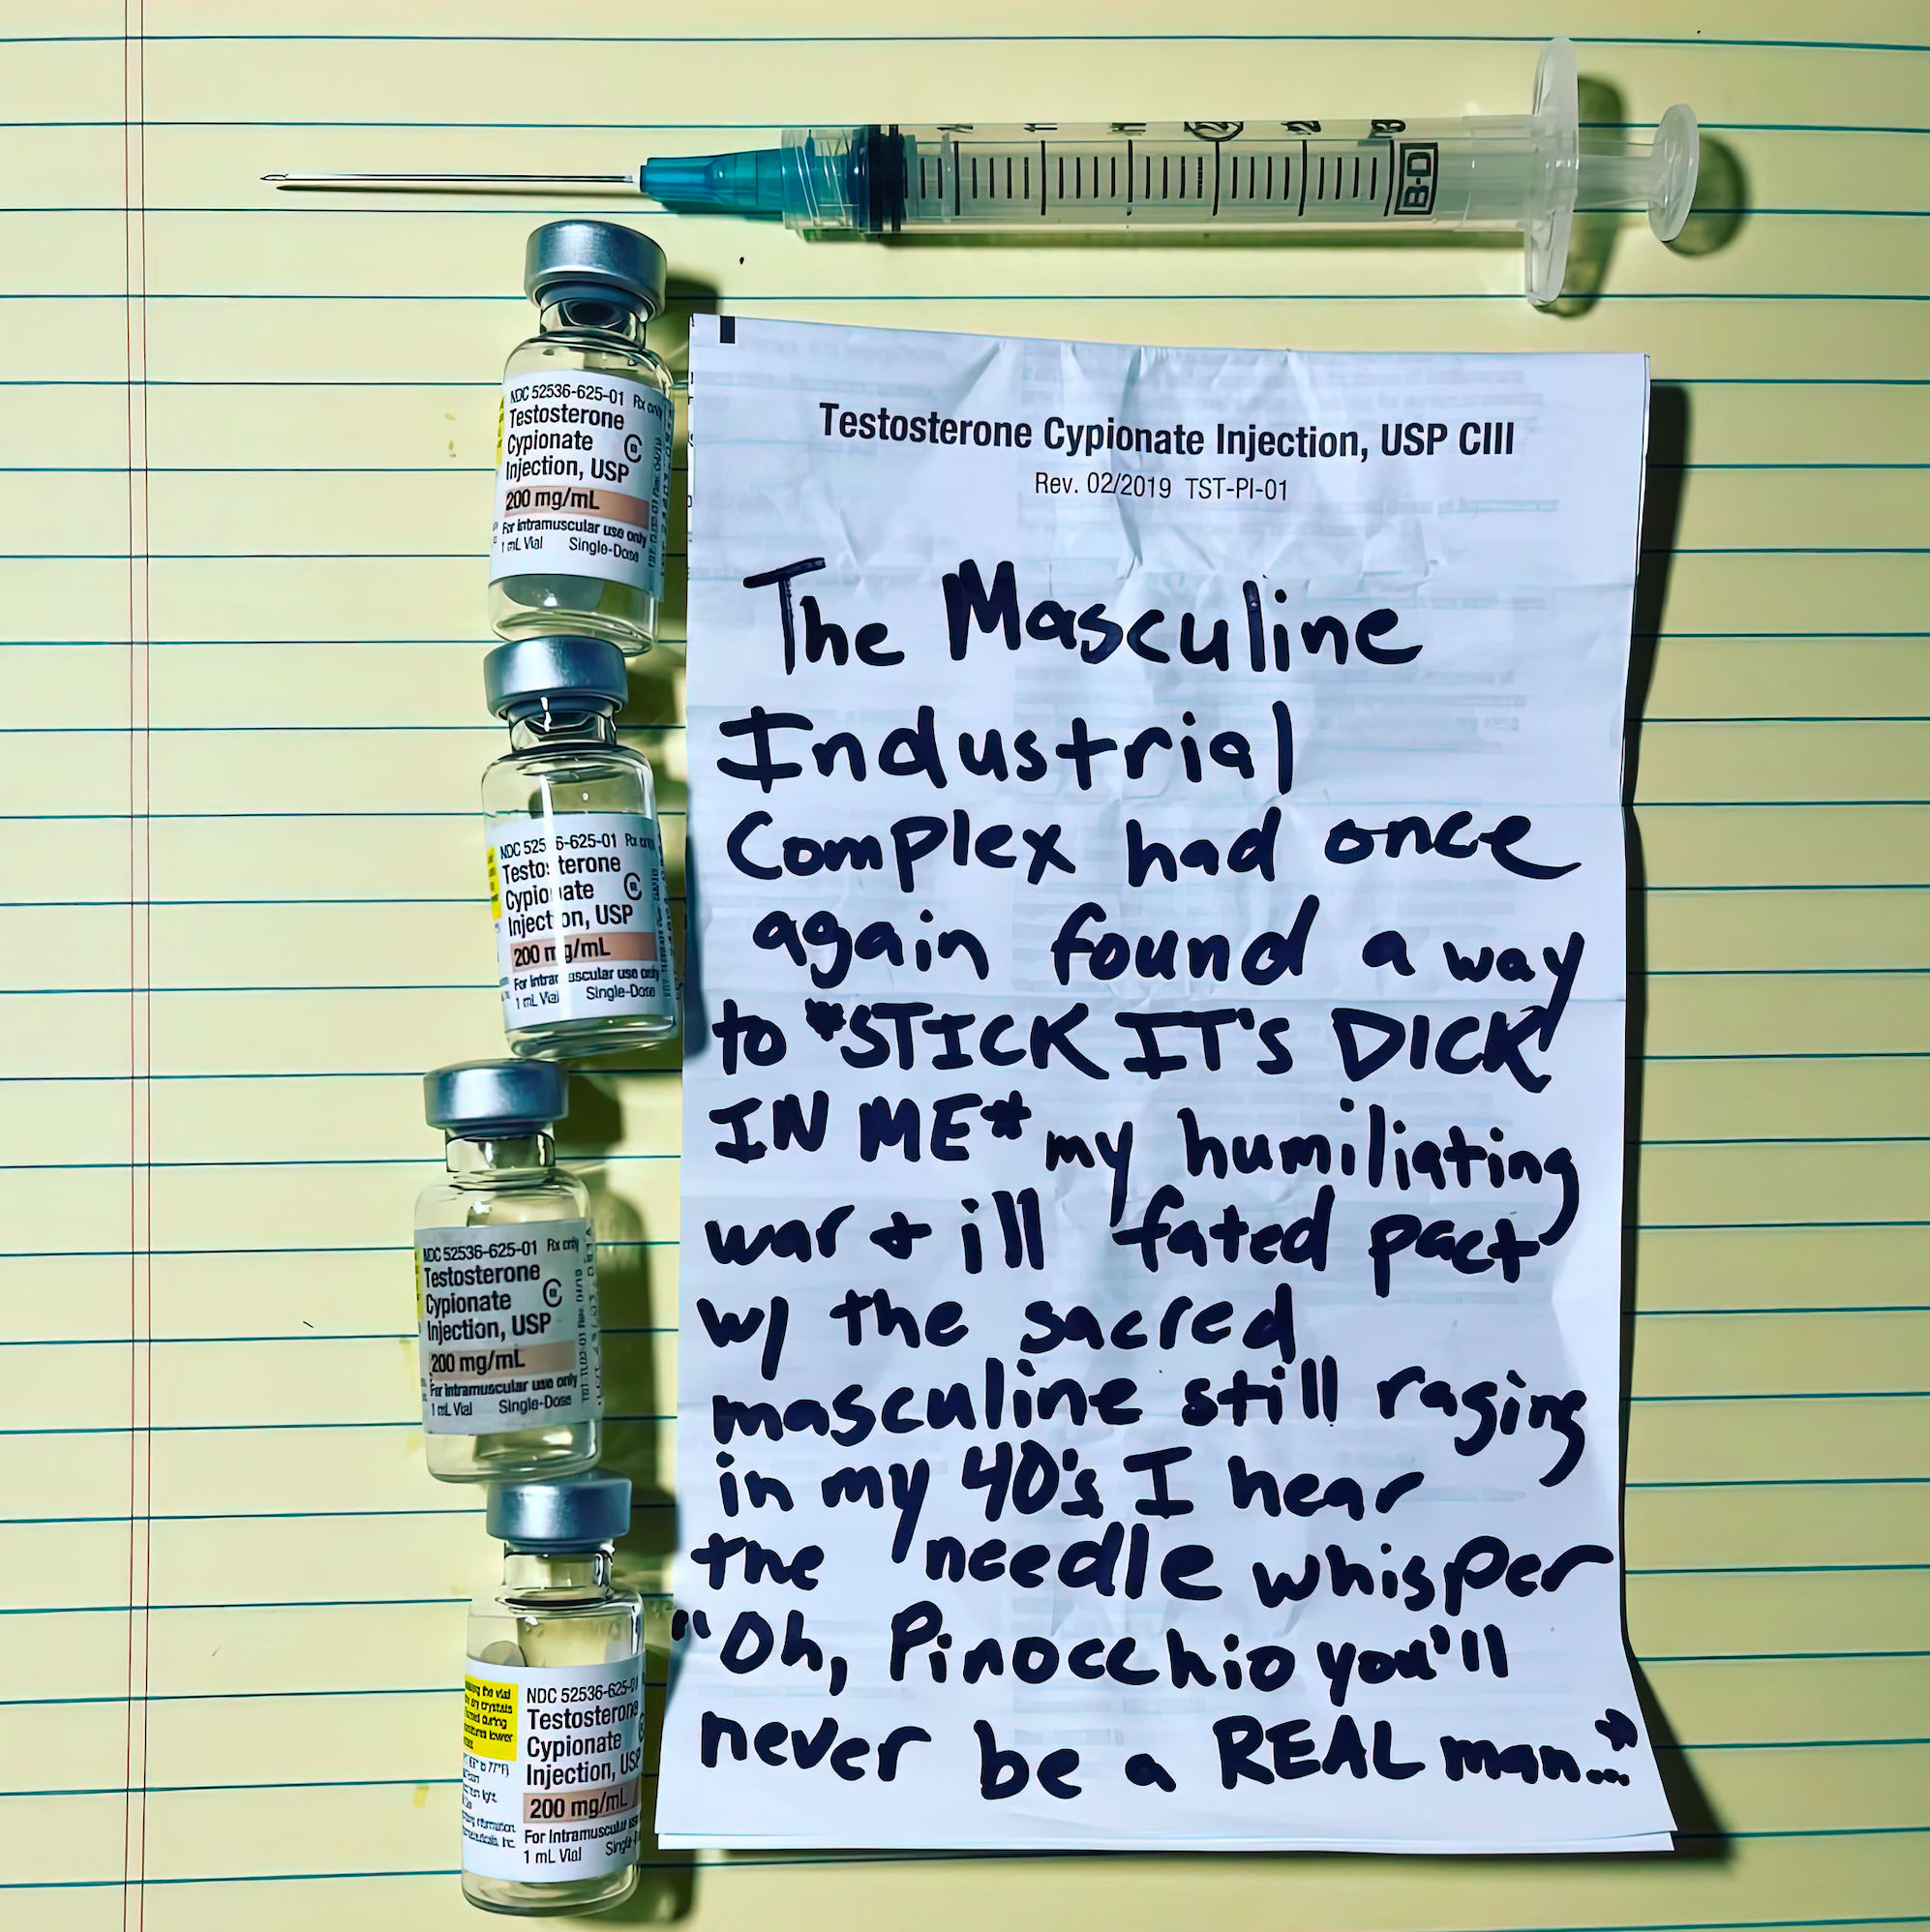 B-D
NDC 52536-625-01 Rx only
Testosterone
Cypionate
Injection, USP
200 mg/mL
For intramuscular use only
1 mL Vial Single-Dose
NDC 52536-625-01 Rx only
Testosterone
Cypionate
Injection, USP
200 mg/mL
For intramuscular use only
1 mL Vial Single-Dose
NDC 52536-625-01 Rx only
Testosterone
Cypionate
Injection, USP
200 mg/mL
For intramuscular use only
1 mL Vial Single-Dose
NDC 52536-625-01
Testosterone
Cypionate
Injection, USP
200 mg/mL
For Intramuscular use
1 mL Vial
Testosterone Cypionate Injection, USP CIII
Rev. 02/2019 TST-PI-01
The Masculine
Industrial
Complex had once
again found a way
to *STICK IT'S DICK
IN ME* my humiliating
war + ill fated pact
w/ the sacred
masculine still raging
in my 40's I hear
the needle whisper
"Oh, Pinocchio you'll
never be a REAL man..."